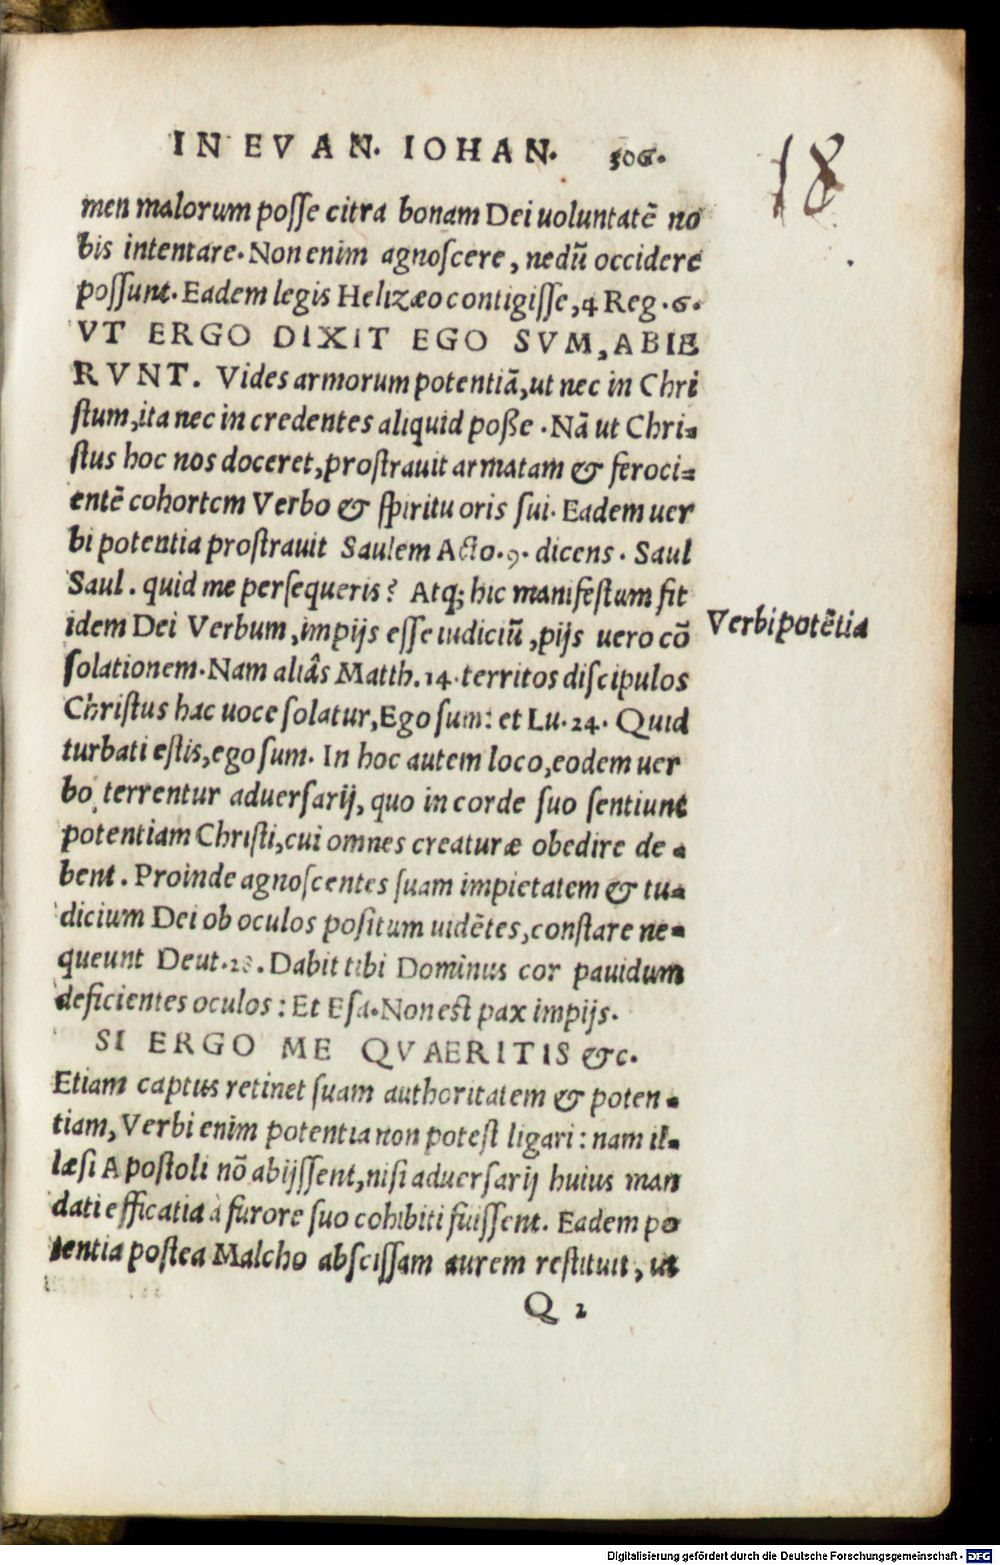 IN EVAN. IOHAN. 306.
18
men malorum posse citra bonam Dei uoluntatē no
bis intentare. Non enim agnoscere, nedū occidere
possunt. Eadem legis Helizæo contigisse, 4 Reg. 6.
VT ERGO DIXIT EGO SVM, ABIE
RVNT. Vides armorum potentiā, ut nec in Chri
stum, ita nec in credentes aliquid poße. Nā ut Chri-
stus hoc nos doceret, prostrauit armatam & feroci-
entē cohortem Verbo & spiritu oris sui. Eadem uer
bi potentia prostrauit Saulem Acto. 9. dicens. Saul
Saul. quid me persequeris? Atq; hic manifestum fit
idem Dei Verbum, impijs esse iudiciū, pijs uero cō
Verbi potētia
solationem. Nam aliâs Matth. 14. territos discipulos
Christus hac uoce solatur, Ego sum: et Lu. 24. Quid
turbati estis, ego sum. In hoc autem loco, eodem uer
bo terrentur aduersarij, quo in corde suo sentiunt
potentiam Christi, cui omnes creaturæ obedire de-
bent. Proinde agnoscentes suam impietatem & iu-
dicium Dei ob oculos positum uidētes, constare ne-
queunt Deut. 28. Dabit tibi Dominus cor pauidum
deficientes oculos: Et Esa. Non est pax impijs.
SI ERGO ME QVAERITIS &c.
Etiam captus retinet suam authoritatem & poten-
tiam, Verbi enim potentia non potest ligari: nam il-
læsi Apostoli nō abijssent, nisi aduersarij huius man
dati efficatia à furore suo cohibiti fuissent. Eadem po
tentia postea Malcho abscissam aurem restituit, ut
Q 2
Digitalisierung gefördert durch die Deutsche Forschungsgemeinschaft - DFG